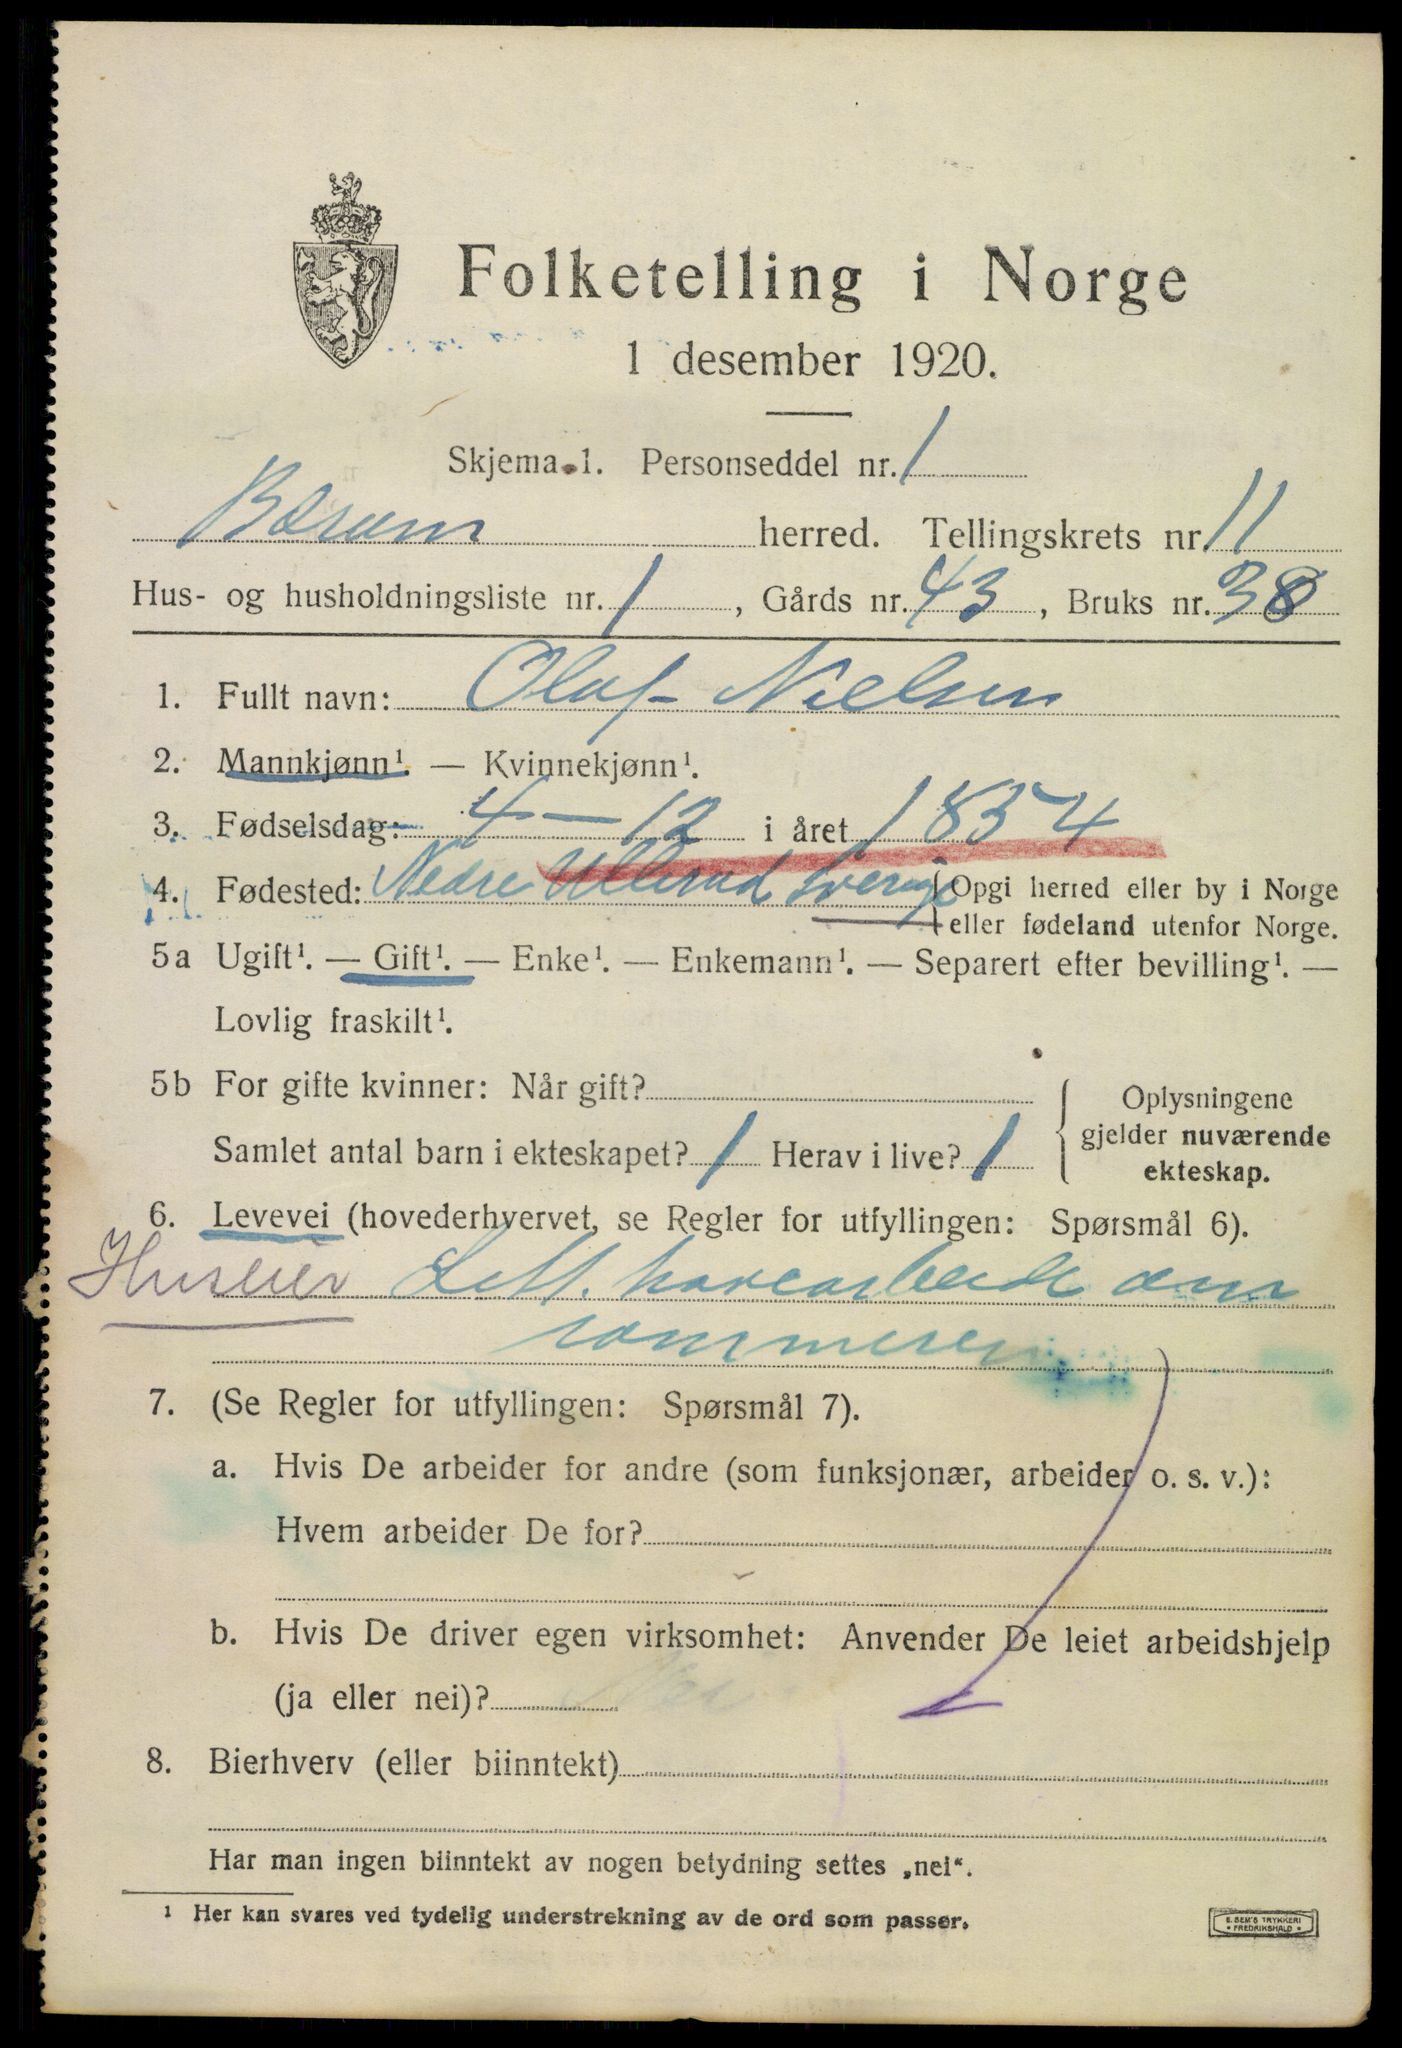 Folketelling i Norge
1 desember 1920.
Skjema 1. Personseddel nr. 1
Bærum herred. Tellingskrets nr. 11
Hus- og husholdningsliste nr. 1, Gårds nr. 43, Bruks nr. 38
1. Fullt navn: Olaf Nielsen
2. Mannkjønn¹. — Kvinnekjønn¹.
3. Fødselsdag: 4 — 12 i året 1854
4. Fødested: Nedre Ullerud Sverige {Opgi herred eller by i Norge
eller fødeland utenfor Norge.
5a Ugift¹. — Gift¹. — Enke¹. — Enkemann¹. — Separert efter bevilling¹. —
Lovlig fraskilt¹.
5b For gifte kvinner: Når gift?
Samlet antal barn i ekteskapet? 1 Herav i live? 1
Oplysningene
gjelder nuværende
ekteskap.
6. Levevei (hovederhvervet, se Regler for utfyllingen: Spørsmål 6).
Huseier Lett havearbeide om
sommeren
7. (Se Regler for utfyllingen: Spørsmål 7).
a. Hvis De arbeider for andre (som funksjonær, arbeider o. s. v.):
Hvem arbeider De for?
b. Hvis De driver egen virksomhet: Anvender De leiet arbeidshjelp
(ja eller nei)? Nei
8. Bierhverv (eller biinntekt)
Har man ingen biinntekt av nogen betydning settes „nei“.
¹ Her kan svares ved tydelig understrekning av de ord som passer.
E. SEM'S TRYKKERI
FREDRIKSHALD